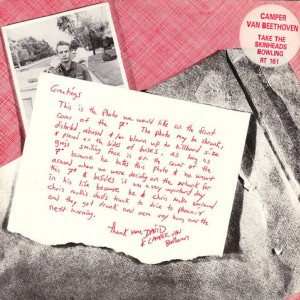 CAMPER
VAN BEETHOVEN
TAKE THE
SKINHEADS
BOWLING
RT 161
Greetings
This is the photo we would like on the front
cover of the 7". The photo may be shrunk,
distorted, abused &/or blown up to billboard size
& placed on the sides of buses, as long as
guys smiling face is on the cover of the
7" because he hates this photo & he wasn't
around when we were deciding on the artwork for
this 7" & besides it was a very important day
in his life because he & chris molla borrowed
chris molla's dad's truck to drive to phoenix
and they got drunk and were very hung over the
next morning.
Thank you, DAVID
& CAMPER VAN
Beethoven